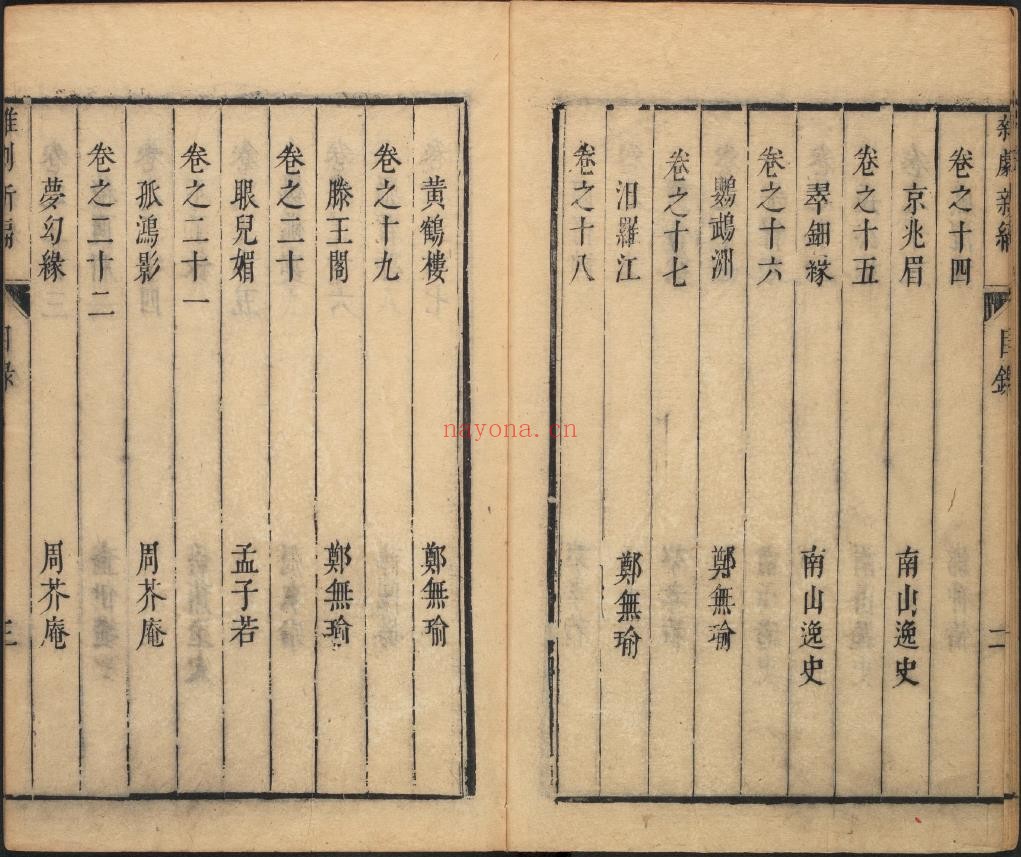 雜劇新編
目錄
二
卷之十四
京兆眉
南山逸史
卷之十五
翠鈿緣
南山逸史
卷之十六
鸚鵡洲
鄭無瑜
卷之十七
汨羅江
鄭無瑜
卷之十八
黃鶴樓
鄭無瑜
卷之十九
滕王閣
鄭無瑜
卷之二十
眼兒媚
孟子若
卷之二十一
孤鴻影
周芥庵
卷之二十二
夢幻緣
周芥庵
雜劇新編
目錄
三
nayona.cn